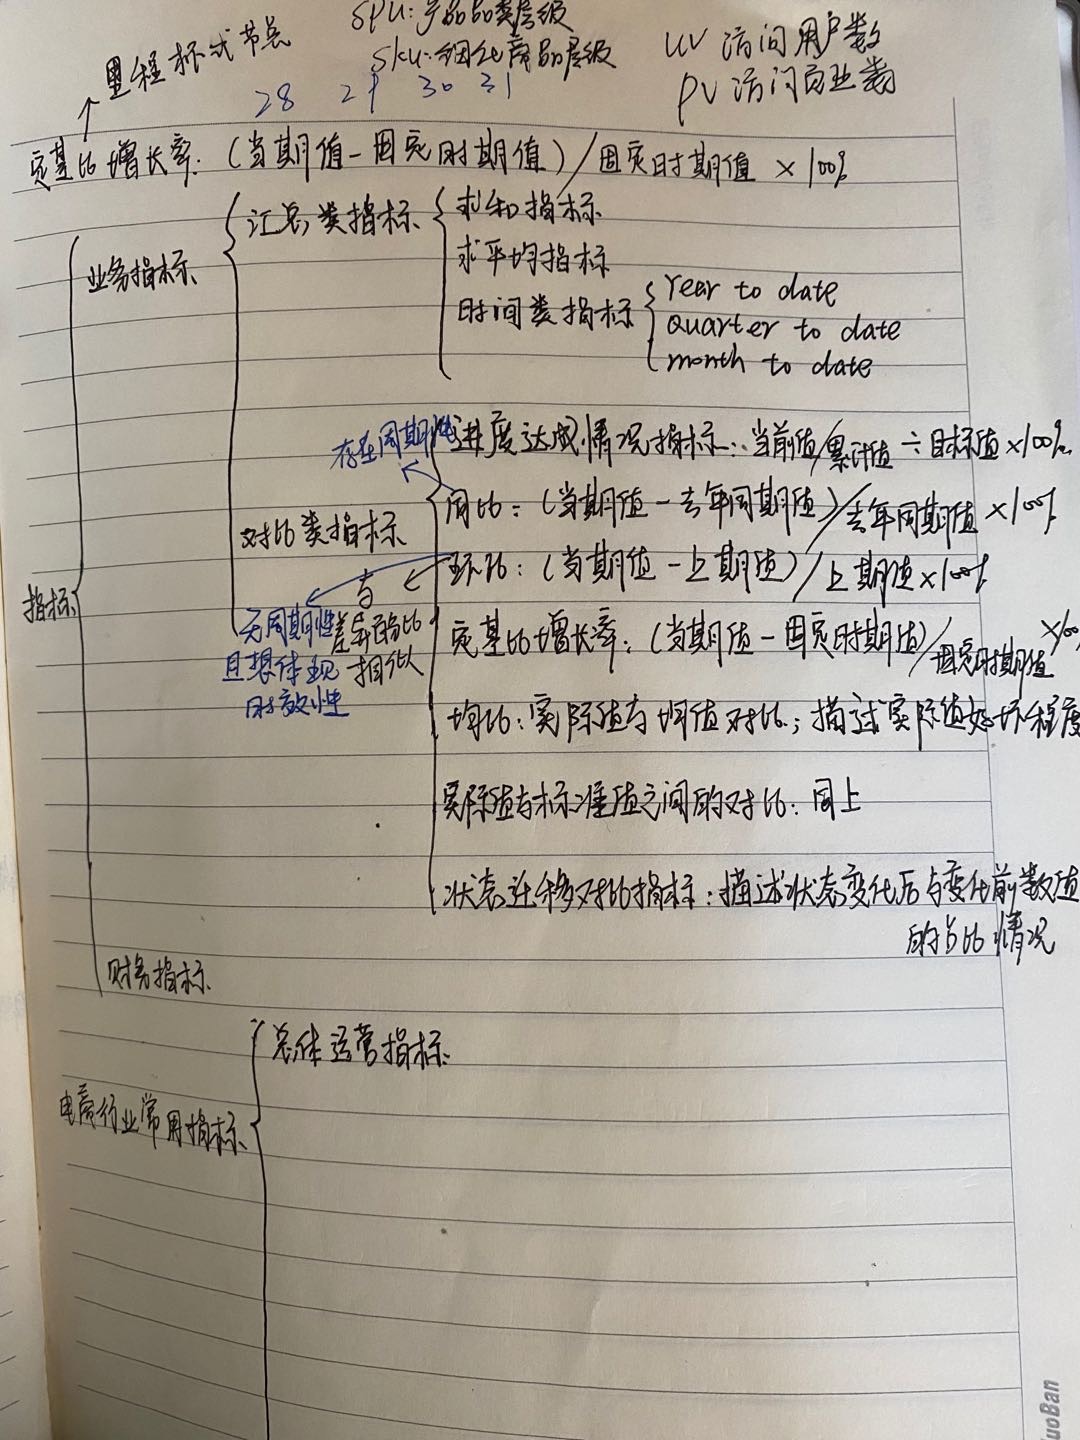 SPU:产品品类层级
里程杯式节点
SKU:细化商品层级
UV 访问用户数
PV 访问页业数
28 29 30 31
定基比增长率:(当期值-固定时期值)/固定时期值×100%
汇总类指标
求和指标
业务指标
求平均指标
时间类指标
Year to date
quarter to date
month to date
存在周期性
进度达成情况指标:当前值/累计值÷目标值×100%
同比:(当期值-去年同期值)/去年同期值×100%
对比类指标
环比:(当期值-上期值)/上期值×100%
指标
与
差异百分比
相似
无周期性
且想体现
时效性
定基比增长率:(当期值-固定时期值)/固定时期值×100
均比:实际值与均值对比;描述实际值好坏程度
实际值与标准值之间的对比:同上
状态迁移对比指标:描述状态变化后与变化前数值
的占比情况
财务指标
总体运营指标
电商行业常用指标
uoBan